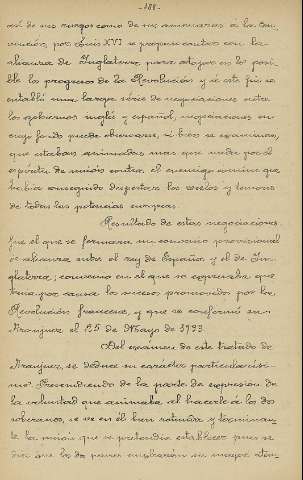 -488-
así de sus ruegos como de sus amenazas á la Con-
vención, por Luis XVI se propuso contar con la
alianza de Inglaterra, para atajar en lo posi-
ble los progresos de la Revolución y á este fin se
entabló una larga série de negociaciones entre
los gobiernos inglés y español, negociaciones en
cuyo fondo puede observarse, si bien se examinan,
que estaban animadas mas que nada por el
espíritu de unión contra el enemigo común que
había conseguido despertar los recelos y temores
de todas las potencias europeas.
Resultado de estas negociaciones
fué el que se formara un convenio provisional
de alianza entre el rey de España y el de In-
glaterra; convenio en el que se expresaba que
era por causa los sucesos promovidos por la
Revolución francesa, y que se confirmó en
Aranjuez el 25 de Mayo de 1793.
Del exámen de este tratado de
Aranjuez, se deduce su carácter particularísi-
mo. Prescindiendo de la parte de expresión de
la voluntad que animaba al hacerle á los dos
soberanos, se ve en él bien rotunda y terminan-
te la unión que se pretendía establecer pues se
dice que los dos paises emplearán su mayor aten-